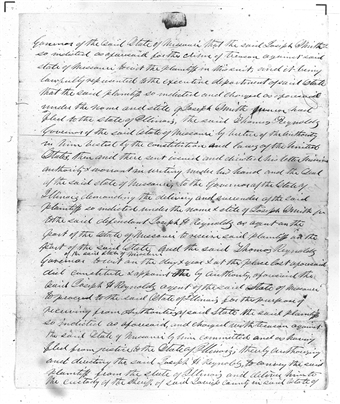 Governor of the said State of Missouri that the said Joseph Smith
so indicted as aforesaid for the crime of treason against said
state of Missouri to wit the plaintiff in this suit, and it being
lawfully represented to the executive department of said State
that the said plaintiff so indicted and charged as aforesaid
under the name and stile of Joseph Smith junior had
fled to the state of Illinois, the said Thomas Reynolds
Governor of the said State of Missouri by virtue of the authority
in him vested by the constitution and laws of the United
States then and there sent issued and directed his letter
authority & warrant in writing under his hand and the Seal
of the said state of Missouri, to the Governor of the State of
Illinois, demanding the delivery and surrender of the said
plaintiff so indicted under the name & stile of Joseph Smith jr
to the said defendant Joseph H Reynolds as agent on the
part of the State of Missouri to receive said plaintiff on the
part of the said State, And the said Thomas Reynolds
of the said state of Missouri
Governor to wit on the day & year & at the place last aforesaid
did constitute & appoint by authority aforesaid the
said Joseph H Reynolds agent of the said State of Missouri
to proceed to the said State of Illinois for the purpose of
receiving from Authority of said State the said plaintiff
so indicted as aforesaid, and charged with treason against
the said State of Missouri by him committed and as having
fled from justice to the State of Illinois, thereby authorizing
and directing the said Joseph H. Reynolds, to convey the said
plaintiff from the state of Illinois and deliver him to
the custody of the Sheriff of said County in said State of